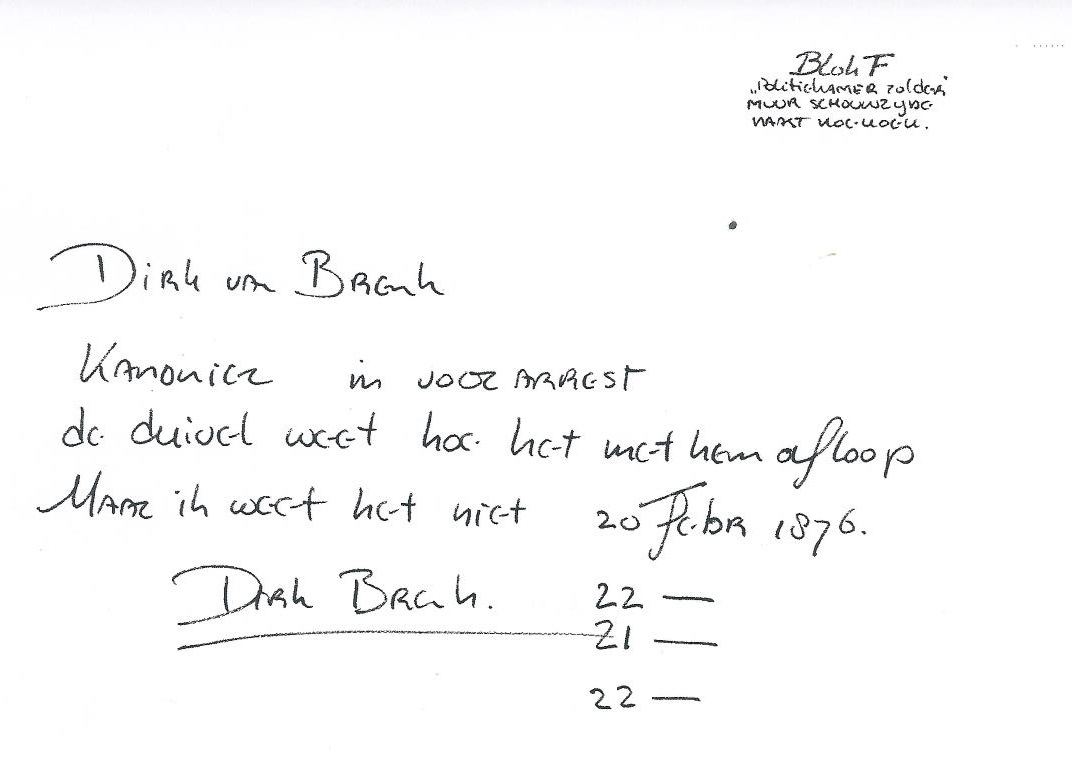 Blok F
"Politiekamer zolder"
MUUR SCHOUWZYDE
NAAST
Dirk van Brenk
Kanonier in voor ARREST
de duivel weet hoe het met hem afloop
Maar ik weet het niet 20 Febr 1876.
Dirk Brenk. 22 —
21 —
22 —